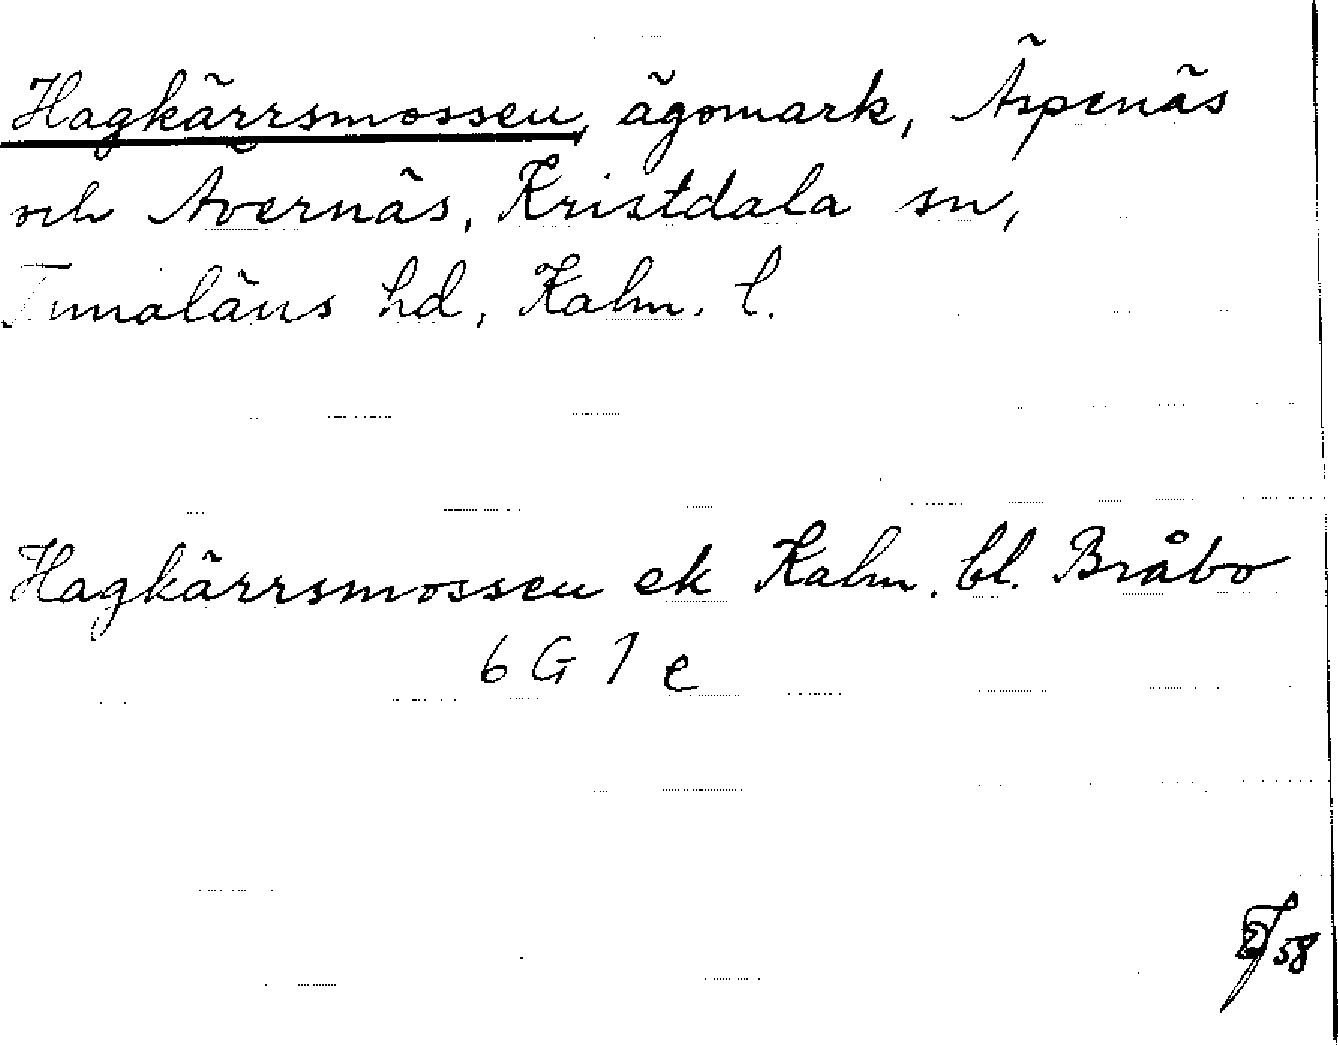 Hagkärrsmossen, ägomark, Äspenäs
ochÄvernäs, Kristdala sn,
Tunaläns hd, Kalm. l.
Hagkärrsmossen ek Kalm. bl. Bråbo
6 G 1 e
58